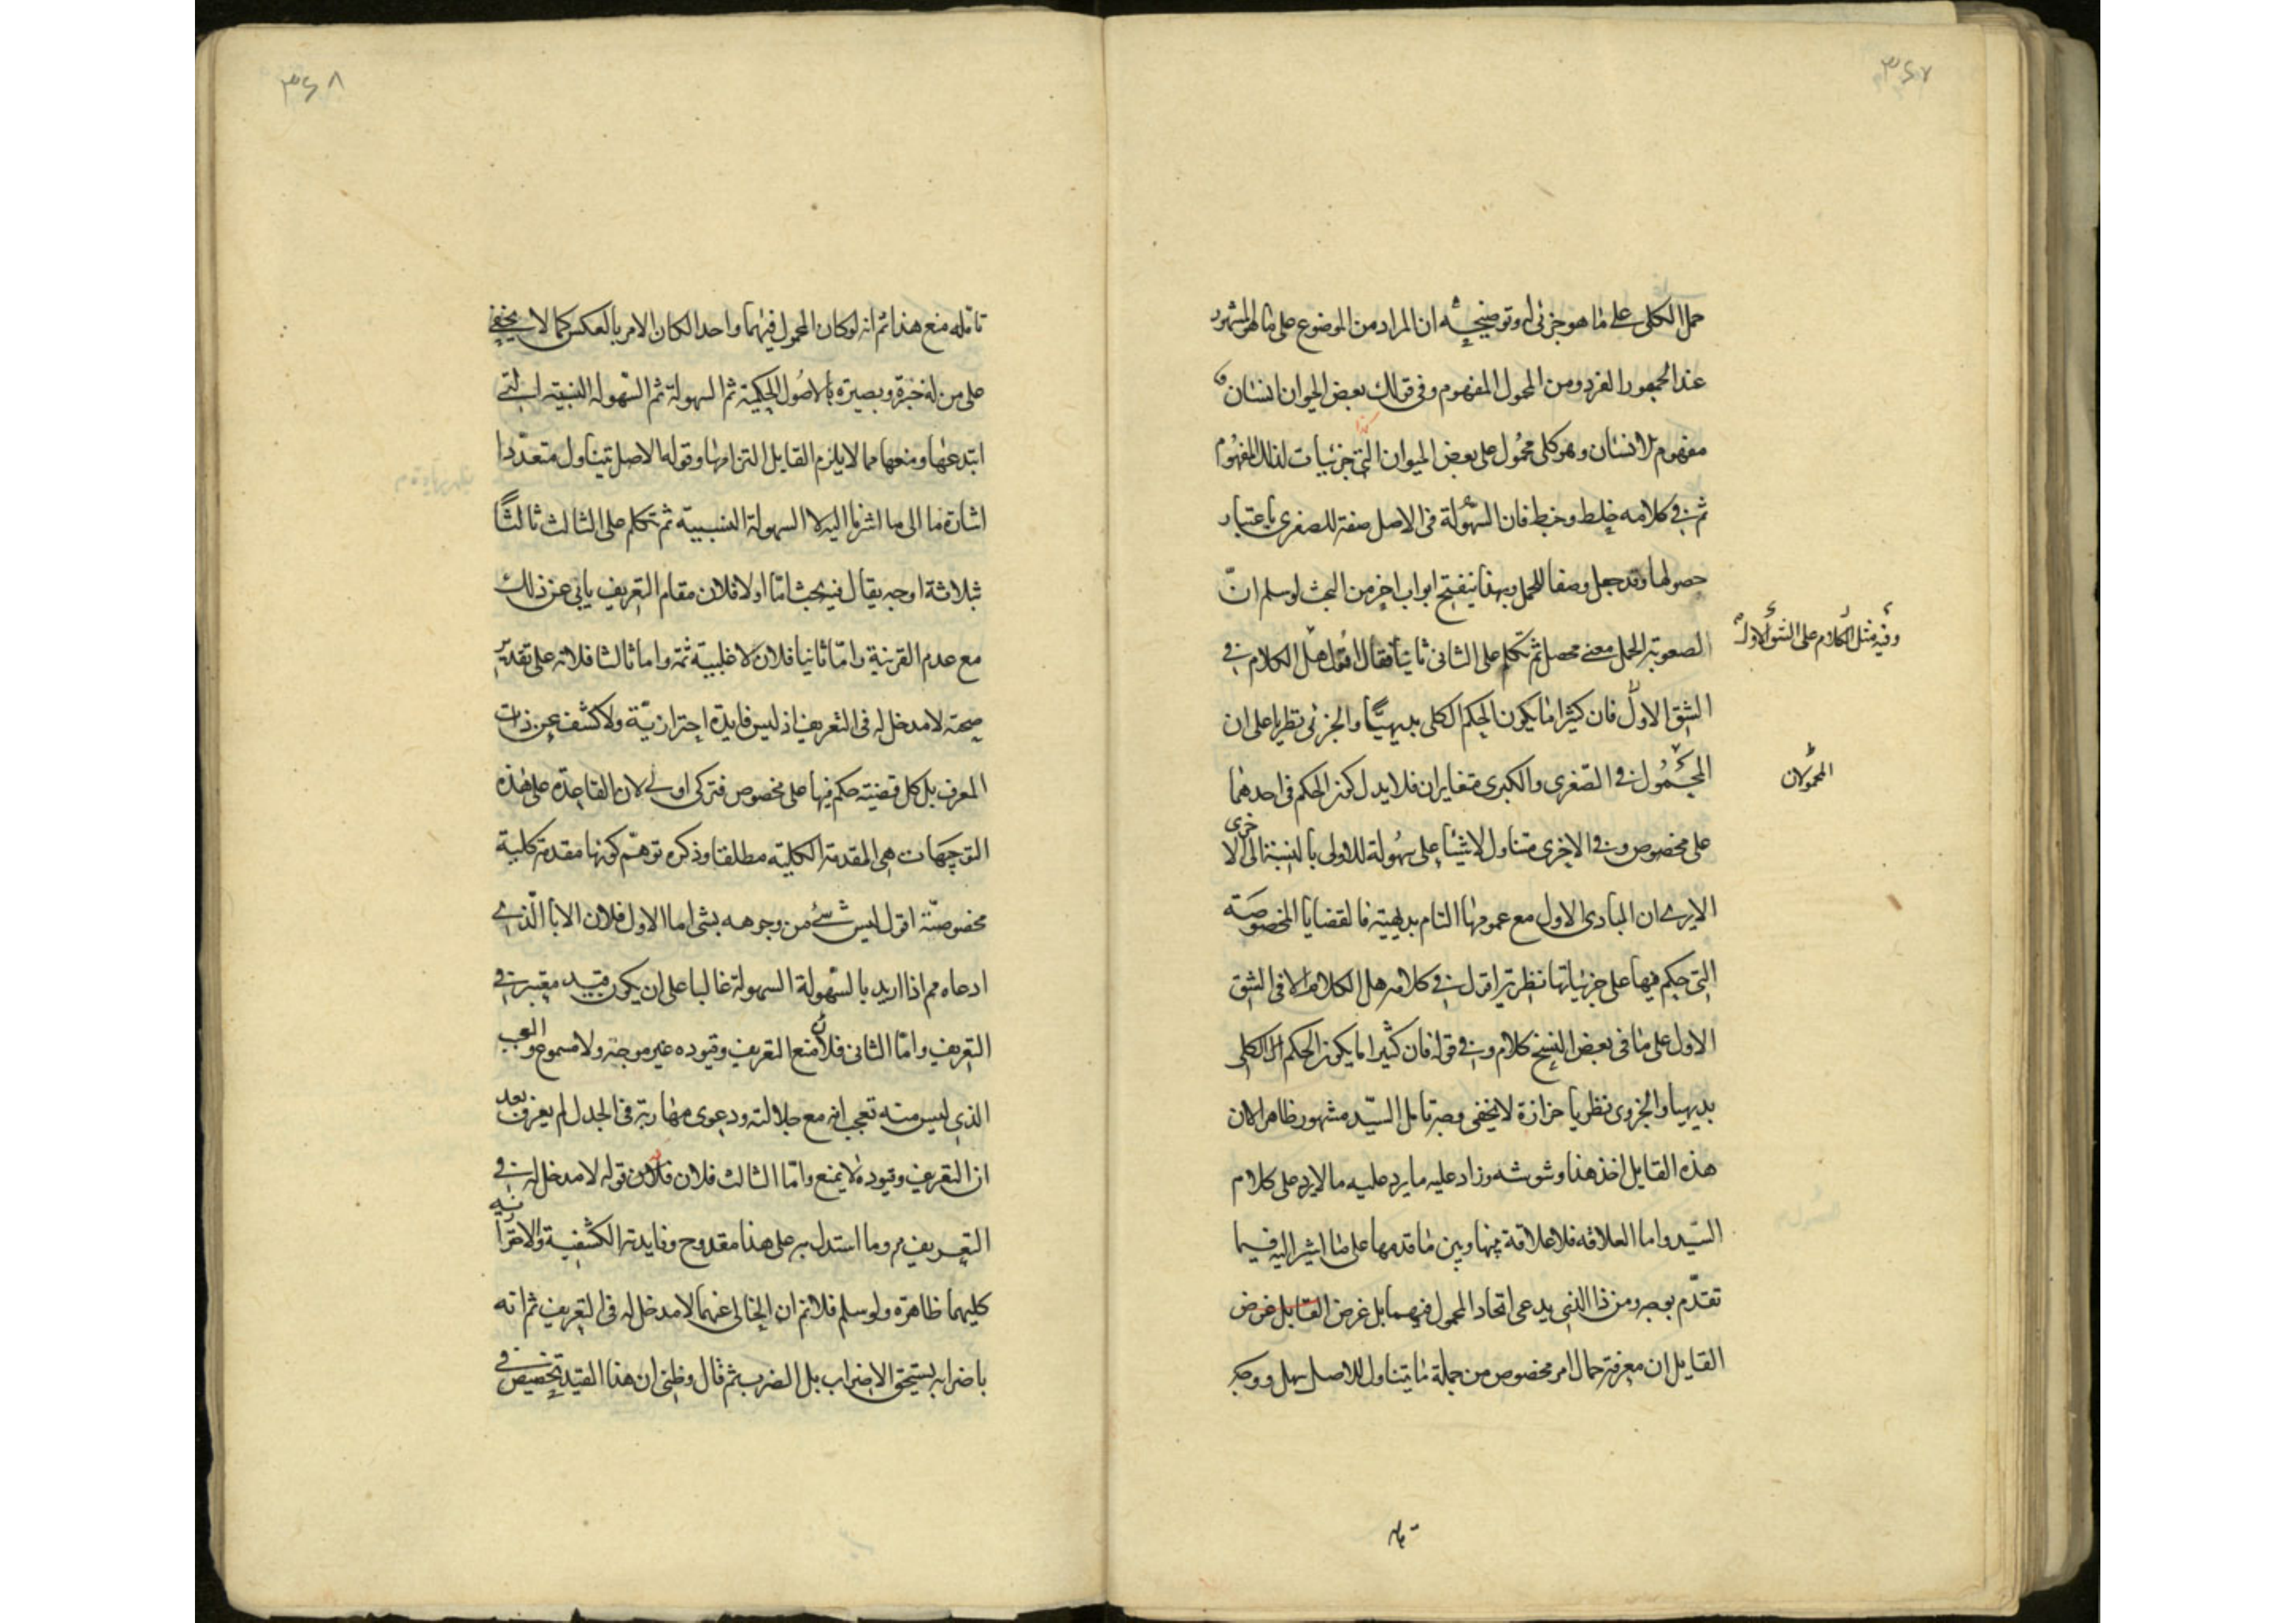 ٣٤٧
حمل الكلى على ما هو جزئى له وتوضيحه ان المراد من الموضوع على ما هو المشهور
عند الجمهور الفرد ومن المحمول المفهوم وفى قولك بعض الحيوان انسان
مفهوم الانسان وهو كلى محمول على بعض الحيوان التى جزئيات لذلك المفهوم
ثم فى كلامه خلط وخبط فان السهولة فى الاصل صفة للصغرى باعتبار
حصولها وقد جعل وصفا للحمل وبهذا ينفتح ابواب اخر من البحث لو سلم ان
الصعوبة الحمل معنى محصل ثم تكلم على الثانى ثانيا فقال اقول هل الكلام فى
وفيه مثل الكلام على الشق الاول
الشق الاول فان كثيرا ما يكون الحكم الكلى بديهيا والجزئى نظريا على ان
المحمول فى الصغرى والكبرى متغايران فلا يدل كون الحكم فى احدهما
المحمولان
على مخصوص وفى الاخرى متناول لاشياء على سهولة للاولى بالنسبة الى الاخرى
الا يرى ان المبادى الاول مع عمومها التام بديهية فالقضايا المخصوصة
التى حكم فيها على جزئياتها نظرية اقول فى كلامه هل الكلام الا فى الشق
الاول على ما فى بعض النسخ كلام وفى قوله فان كثيرا ما يكون الحكم الكلى
بديهيا والجزوى نظريا حزازة لا يخفى وجه تامل السيد مشهور ظاهر الان
هذه القايل اخذ هذا وشوشه وزاد عليه ما يرد عليه ما لا يرد على كلام
السيد واما العلاقه فلا علاقة بينها وبين ما قدمها على ما اشير اليه فيما
تقدم بوجه ومن ذا الذى يدعى اتحاد المحمول فيهما بل غرض القايل غرض
القايل ان معرفة حال امر مخصوص من جملة ما يتناول للاصل سهل ووجه
٣٤٨
تامله منع هذا ثم انه لو كان المحمول فيهما واحدا لكان الامر بالعكس كما لا يخفى
على من له خبرة وبصيرة بالاصول الحكمية ثم السهولة ثم السهولة النسبية التى
ابتدعها ومنعها مما لا يلزم القايل التزامها وقوله الاصل تيناول متعددا
اشارة ما الى ما اشرنا اليه لا السهولة النسبية ثم تكلم على الثالث ثالثا
بثلاثة اوجه يقال فيه بحث اما اولا فلان مقام التعريف يابى عن ذلك
مع عدم القرينة واما ثانيا فلان لا غلبية ثمة واما ثالثا فلانه على تقدير
صحته لا مدخل له فى التعريف اذ ليس فايدة احترازية ولا كشف عن ذات
المعرف بل كل قضية حكم فيها على مخصوص فتركى اولى لان القاعدة على هذه
التوجيهات هى المقدمة الكلية مطلقا وذكره توهم كونها مقدمة كلية
مخصوصة اقول ليس شئ من وجوهه بشى اما الاول فلان الابا الذى
ادعاه مم اذا اريد بالسهولة السهولة غالبا على ان يكون قيد معتبر فى
التعريف واما الثانى فلان منع التعريف وقيوده غير موجه ولا مسموع والعجب
الذى ليس منه تعجب انه مع جلالته ودعوى مهارته فى الجدل لم يعرف بعد
ان التعريف وقيوده لا يمنع واما الثالث فلان قوله لا مدخل له فى
التعريف مم وما استدل به على هذا مقدوح وفايدته الكشفية والاحترازية
كليهما ظاهرة ولو سلم فلا نم ان الخالى عنهما لا مدخل له فى التعريف ثم انه
باضرابه يستحق الاضراب بل الضرب ثم قال وظنى ان هذا القيد تخصيص فى